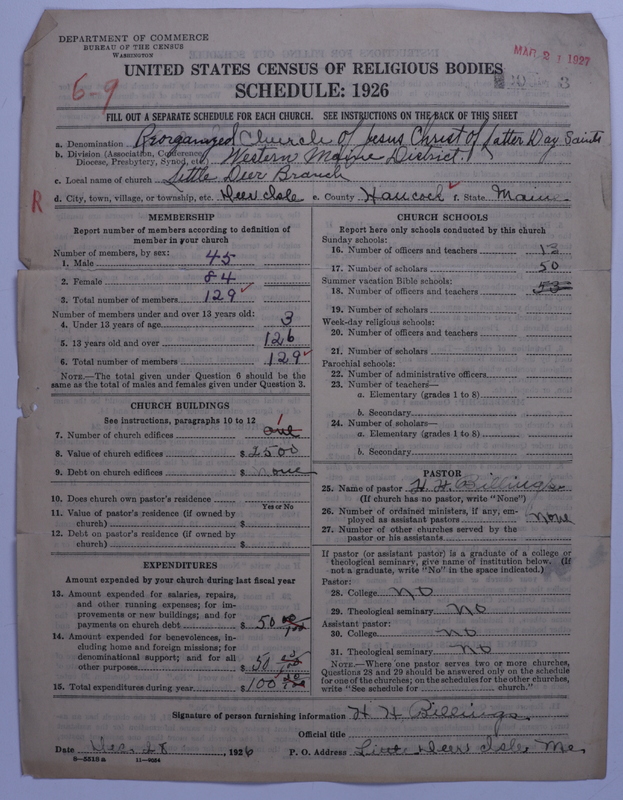 DEPARTMENT OF COMMERCE
BUREAU OF THE CENSUS
WASHINGTON
MAR 21 1927
6-9
UNITED STATES CENSUS OF RELIGIOUS BODIES
SCHEDULE: 1926
FILL OUT A SEPARATE SCHEDULE FOR EACH CHURCH. SEE INSTRUCTIONS ON THE BACK OF THIS SHEET
a. Denomination Reorganized Church of Jesus Christ of Latter Day Saints
b. Division (Association, Conference, Diocese, Presbytery, Synod, etc.) Western Maine District.
c. Local name of church Little Deer Branch
R
d. City, town, village, or township, etc. Deer Isle e. County Hancock f. State Maine
MEMBERSHIP
Report number of members according to definition of
member in your church
Number of members, by sex:
1. Male 45
2. Female 84
3. Total number of members 129
Number of members under and over 13 years old:
4. Under 13 years of age 3
5. 13 years old and over 126
6. Total number of members 129
NOTE.—The total given under Question 6 should be the
same as the total of males and females given under Question 3.
CHURCH BUILDINGS
See instructions, paragraphs 10 to 12
7. Number of church edifices one 1
8. Value of church edifices $ 2500
9. Debt on church edifices $ none
10. Does church own pastor's residence
Yes or No
11. Value of pastor's residence (if owned by
church) $
12. Debt on pastor's residence (if owned by
church) $
EXPENDITURES
Amount expended by your church during last fiscal year
13. Amount expended for salaries, repairs,
and other running expenses; for im-
provements or new buildings; and for
payments on church debt $ 50 00/100
14. Amount expended for benevolences, in-
cluding home and foreign missions; for
denominational support; and for all
other purposes $ 50
15. Total expenditures during year $ 100
CHURCH SCHOOLS
Report here only schools conducted by this church
Sunday schools:
16. Number of officers and teachers 13
17. Number of scholars 50
Summer vacation Bible schools:
18. Number of officers and teachers 53
19. Number of scholars
Week-day religious schools:
20. Number of officers and teachers
21. Number of scholars
Parochial schools:
22. Number of administrative officers
23. Number of teachers—
a. Elementary (grades 1 to 8)
b. Secondary
24. Number of scholars—
a. Elementary (grades 1 to 8)
b. Secondary
PASTOR
25. Name of pastor H. H. Billings
(If church has no pastor, write "None")
26. Number of ordained ministers, if any; em-
ployed as assistant pastors none
27. Number of other churches served by the
pastor or his assistants
If pastor (or assistant pastor) is a graduate of a college or
theological seminary, give name of institution below. (If
not a graduate, write "No" in the space indicated.)
Pastor:
28. College no
29. Theological seminary No
Assistant pastor:
30. College no
31. Theological seminary No
NOTE.—Where one pastor serves two or more churches,
Questions 28 and 29 should be answered only on the schedule
for one of the churches; on the schedules for the other churches,
write "See schedule for church."
Signature of person furnishing information H H Billings
Official title
Date Dec. 28, 1926 P. O. Address Little Deer Isle Me.
8-5518a 11-9054